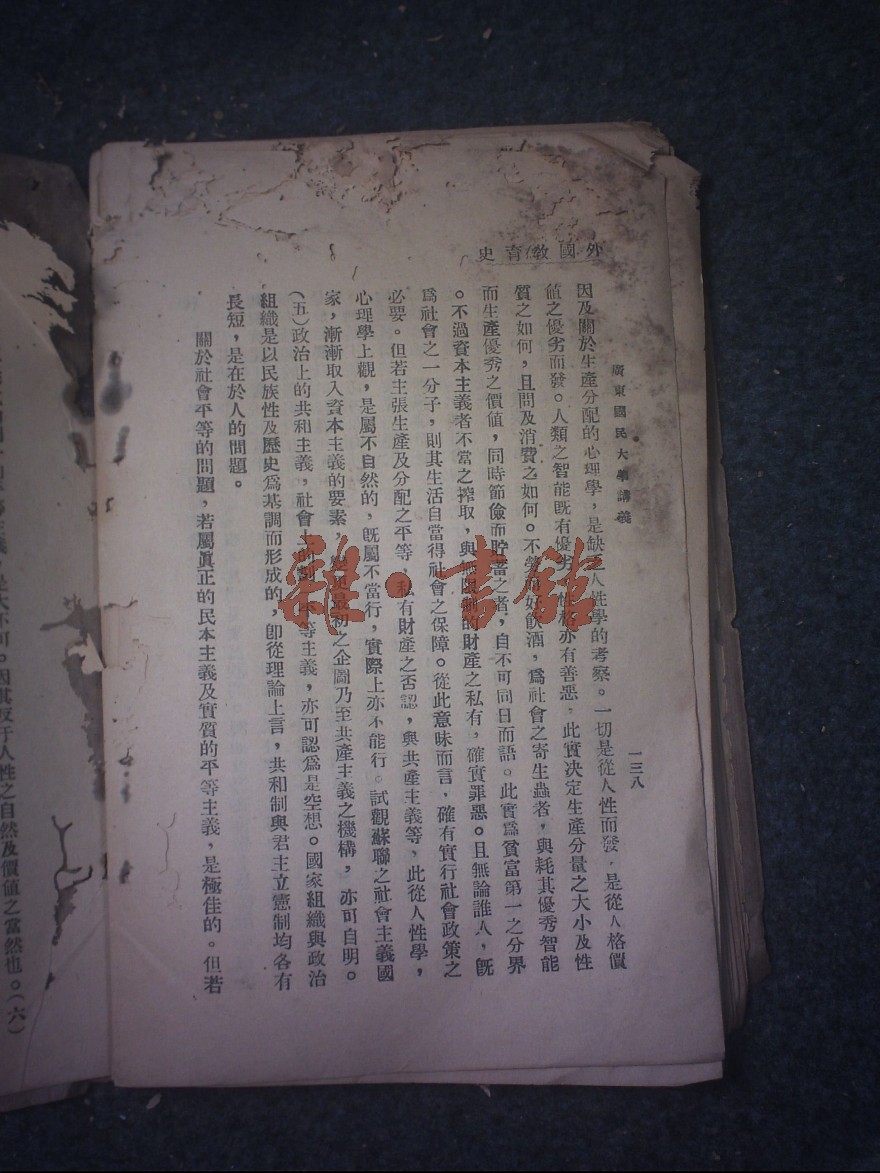 外國敎育史
廣東國民大學講義
一三八
因及關於生產分配的心理學，是缺乏人性學的考察。一切是從人性而發，是從人格價
値之優劣而發。人類之智能旣有優劣，性格亦有善惡，此實決定生產分量之大小及性
質之如何，且問及消費之如何。不勞而好飮酒，爲社會之寄生蟲者，與耗其優秀智能
而生產優秀之價値，同時節儉而貯蓄之者，自不可同日而語。此實爲貧富第一之分界
。不過資本主義者不當之搾取，與無限制的財產之私有，確實罪惡。且無論誰人，旣
爲社會之一分子，則其生活自當得社會之保障。從此意味而言，確有實行社會政策之
必要。但若主張生產及分配之平等，私有財產之否認，與共產主義等，此從人性學，
心理學上觀，是屬不自然的，旣屬不當行，實際上亦不能行。試觀蘇聯之社會主義國
家，漸漸取入資本主義的要素，變更最初之企圖乃至共產主義之機構，亦可自明。
（五）政治上的共和主義，社會上的劃一平等主義，亦可認爲是空想。國家組織與政治
組織是以民族性及歷史爲基調而形成的，卽從理論上言，共和制與君主立憲制均各有
長短，是在於人的問題。
關於社會平等的問題，若屬眞正的民本主義及實質的平等主義，是極佳的。但若
是大不可。因其反于人性之自然及價値之當然也。（六）
雜·書館